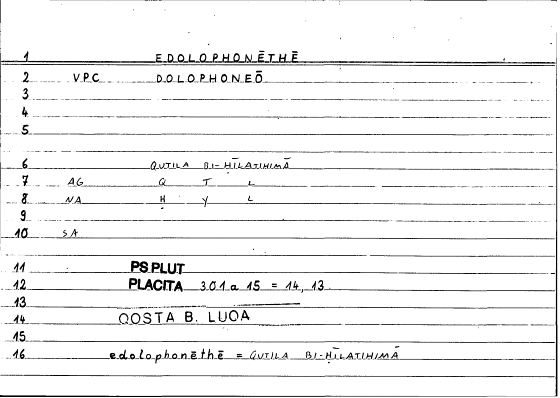 1 EDOLOPHONĒTHĒ
2 VPC DOLOPHONEŌ
3
4
5
6 QUTILA BI-ḤĪLATIHIMĀ
7 AG Q T L
8 NA Ḥ Y L
9
10 SA
11 PS.PLUT
12 PLACITA 301 a 15 = 14, 13
13
14 QOSTA B. LUQA
15
16 edolophonēthē = QUTILA BI-ḤĪLATIHIMĀ